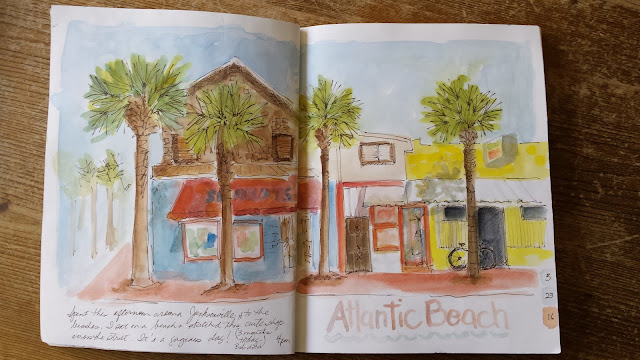 Spent the afternoon around Jacksonville, & to the
beaches. I sat on a bench & sketched this cute shop
across the street. It's a gorgeous day!
today
4pm
Atlantic Beach
3
23
16